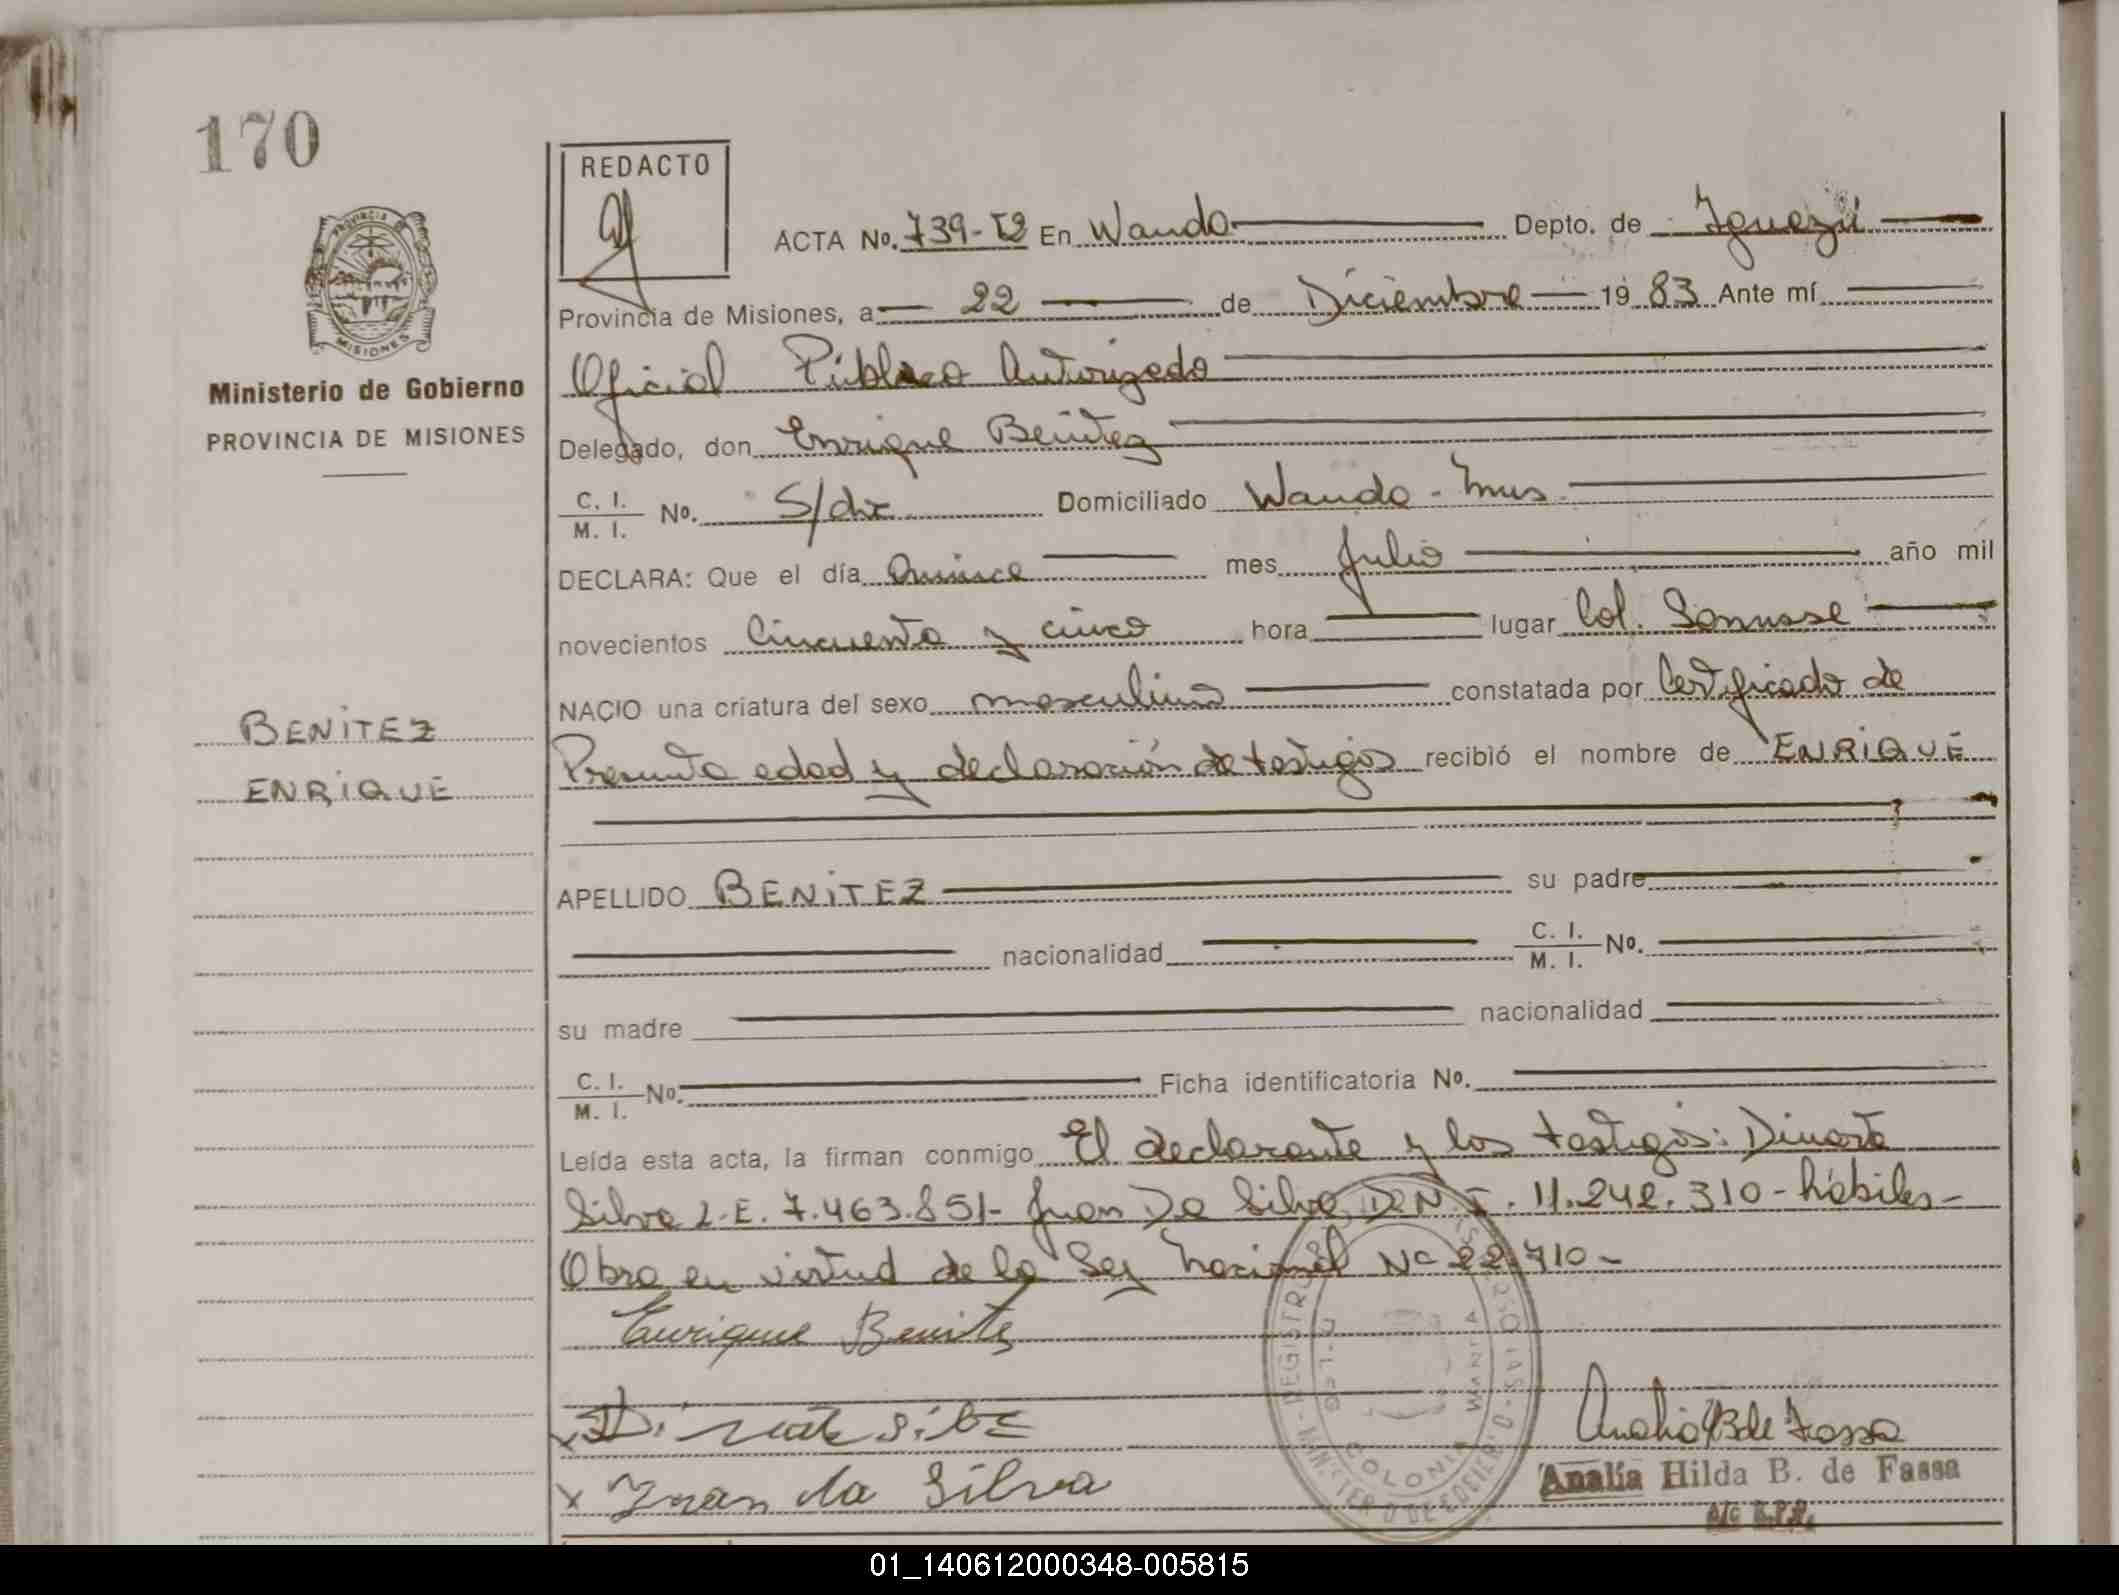 170
REDACTO
ACTA No. 739-T2 En Wanda Depto. de Iguazú
Provincia de Misiones, a 22 de Diciembre 19 83 Ante mí
Oficial Público Autorizado
PROVINCIA
MISIONES
Ministerio de Gobierno
PROVINCIA DE MISIONES
Delegado, don Enrique Benitez
C. I.
M. I. No. S/dic Domiciliado Wanda - Mnes
DECLARA: Que el día Quince mes Julio año mil
novecientos Cincuenta y cinco hora lugar Col.
NACIO una criatura del sexo masculino constatada por Certificado de
BENITEZ
ENRIQUE
Presunta edad y declaración de testigos recibió el nombre de ENRIQUE
APELLIDO BENITEZ su padre
nacionalidad C. I.
M. I. No.
su madre nacionalidad
C. I.
M. I. No. Ficha identificatoria No.
Leída esta acta, la firman conmigo El declarante y los testigos: Dinarte
Silva L.E. 7.463.851- Juan Da Silva D.N.I. 11.242.310 - hábiles -
Obra en virtud de la Ley Nacional Nº 22.710 -
Enrique Benitez
x Dinarte Silva
x Juan da Silva
COLONIA WANDA
Analia H B de Fassa
Analía Hilda B. de Fassa
01_140612000348-005815